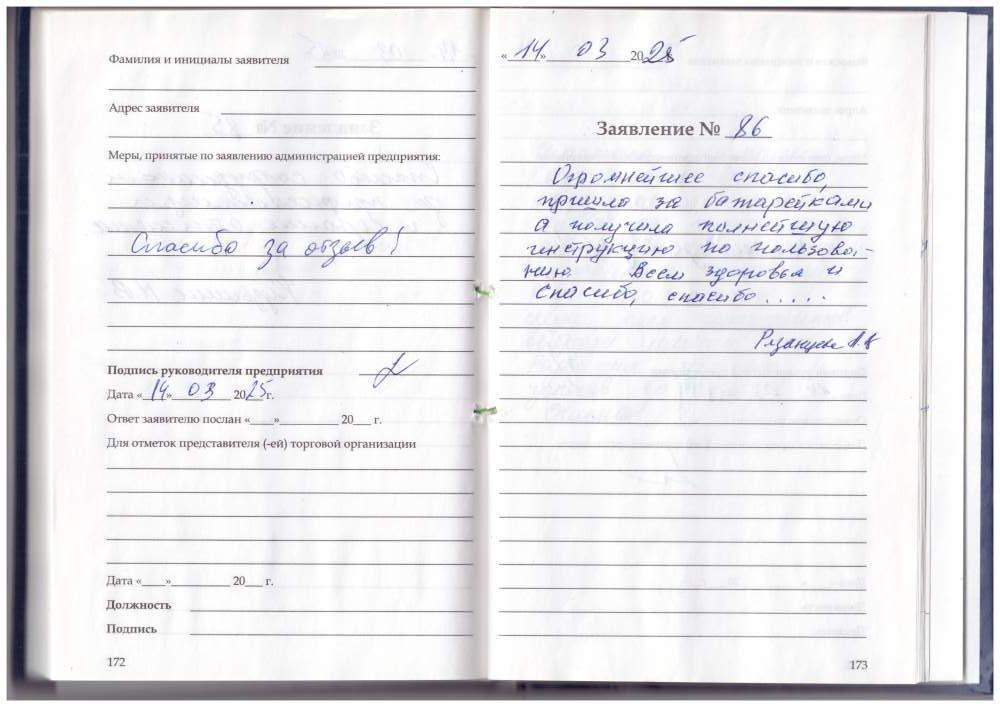 Фамилия и инициалы заявителя
Адрес заявителя
Меры, принятые по заявлению администрацией предприятия:
Спасибо за отзыв!
Подпись руководителя предприятия
Дата «14» 03 2025г.
Ответ заявителю послан «___»__________ 20___ г.
Для отметок представителя (-ей) торговой организации
Дата «____»__________ 20___ г.
Должность
Подпись
172
«14» 03 2025
Заявление № 86
Огромнейшее спасибо,
пришла за батарейками
а получила полнейшую
инструкцию по пользова-
нию. Всем здоровья и
спасибо, спасибо.....
173